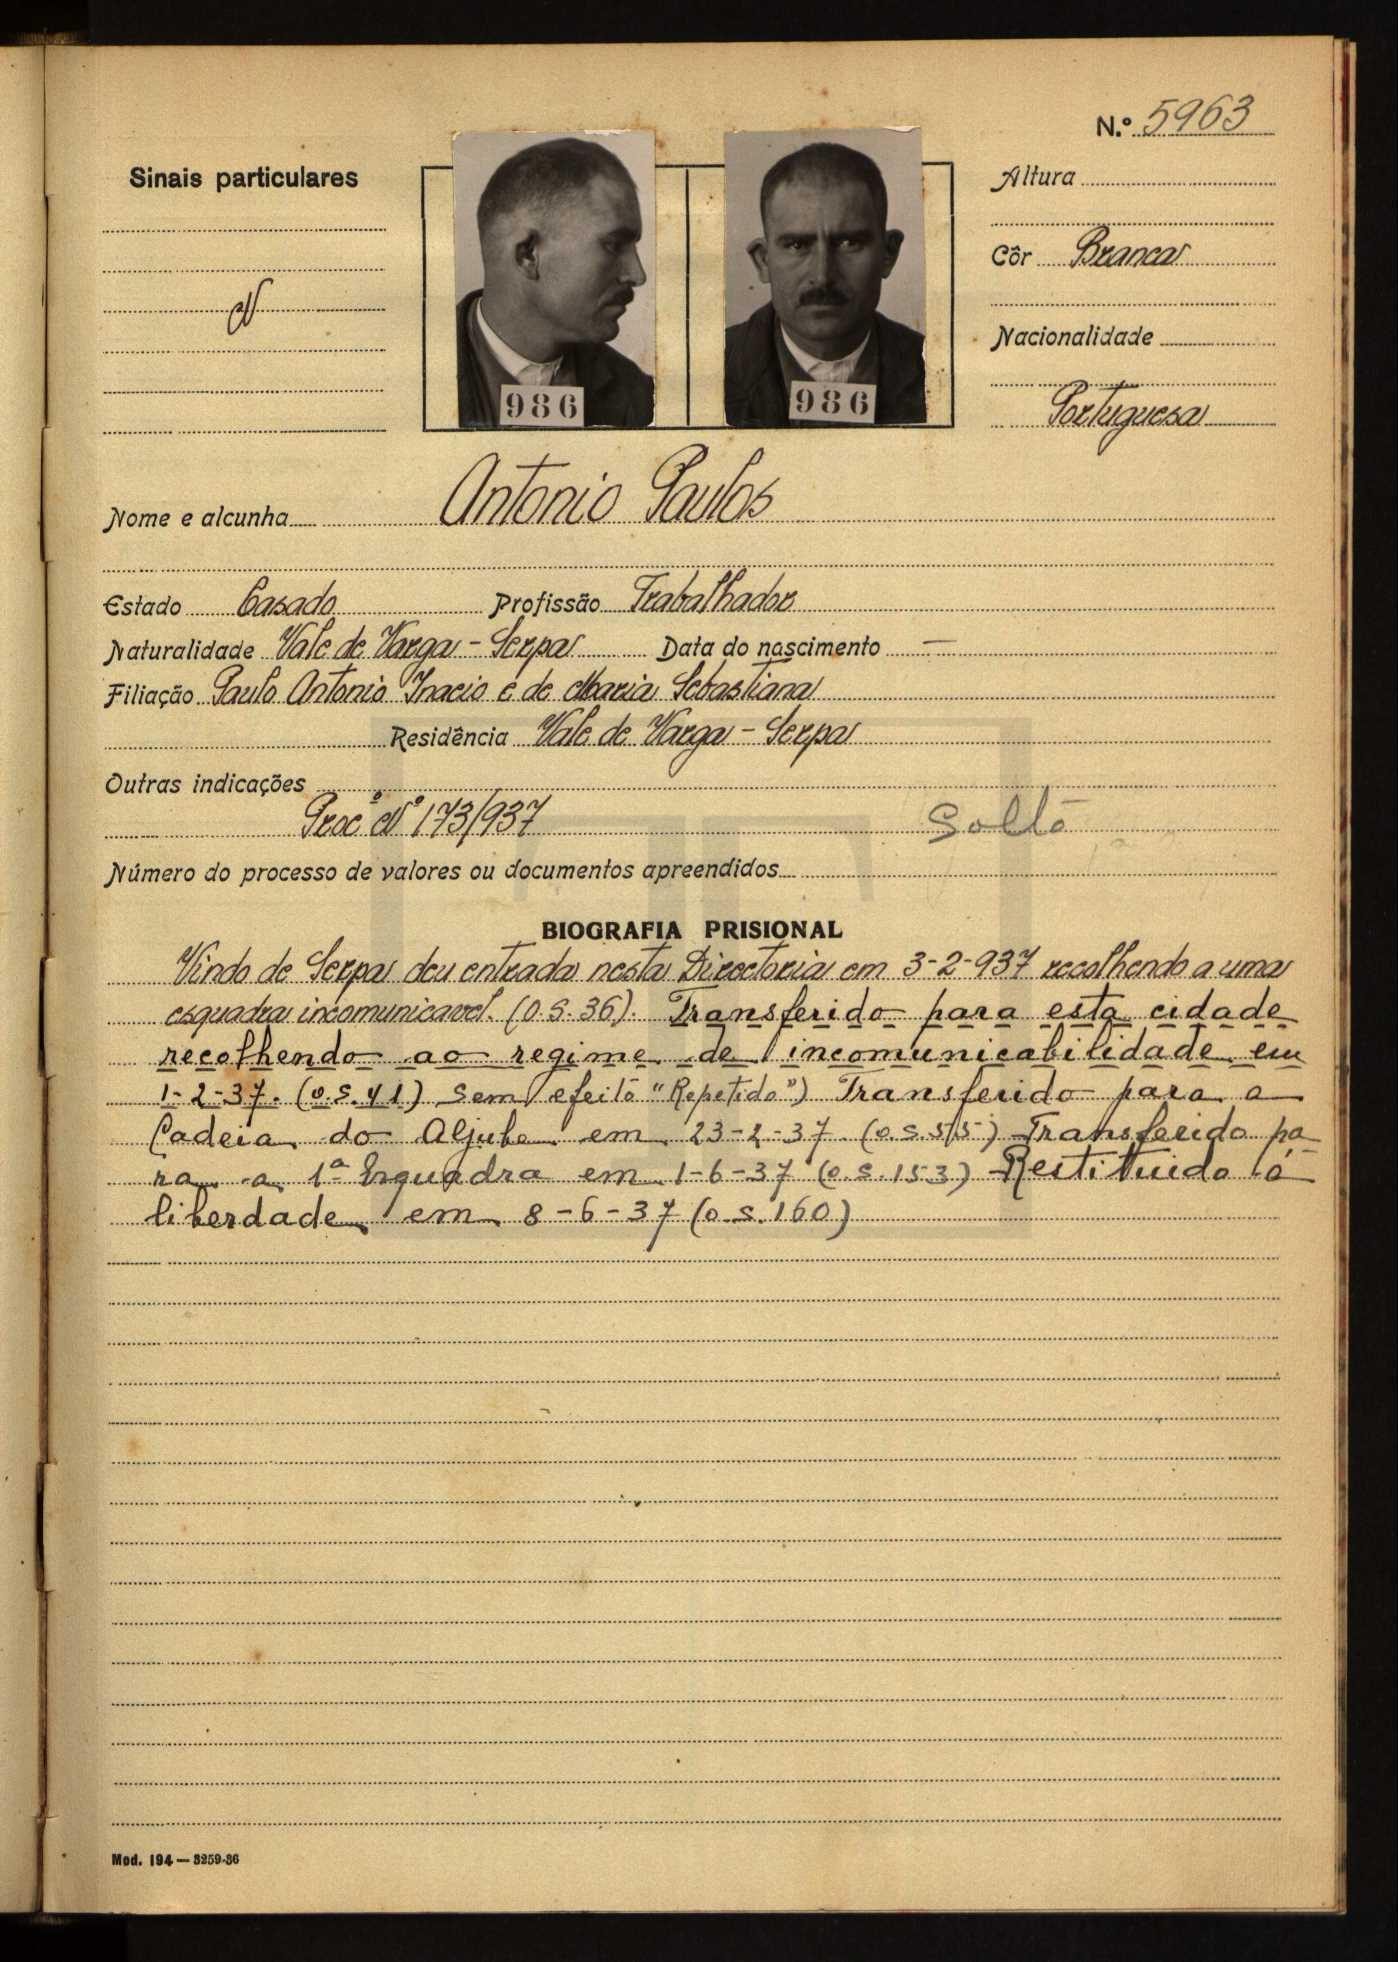 N.º 5963
Sinais particulares
N
986
986
Altura
Côr Branca
Nacionalidade
Portuguesa
Nome e alcunha Antonio Paulos
Estado Casado Profissão Trabalhador
Naturalidade Vale de Varga - Serpa Data do nascimento —
Filiação Paulo Antonio Inacio e de Maria Sebastiana
Residência Vale de Varga - Serpa
Outras indicações
Procº Nº 173/937 Solto
Número do processo de valores ou documentos apreendidos
BIOGRAFIA PRISIONAL
Vindo de Serpa deu entrada nesta Directoria em 3-2-937 recolhendo a uma
esquadra incomunicavel. (O.S. 36). Transferido para esta cidade
recolhendo ao regime de incomunicabilidade em
1-2-37. (o.s. 41) sem efeito "Repetido") Transferido para a
Cadeia do Aljube em 23-2-37 (o.s.55) Transferido pa-
ra a 1ª Esquadra em 1-6-37 (o.s.153) Restituido á
liberdade em 8-6-37 (o.s.160)
Mod. 194 — 3259-36